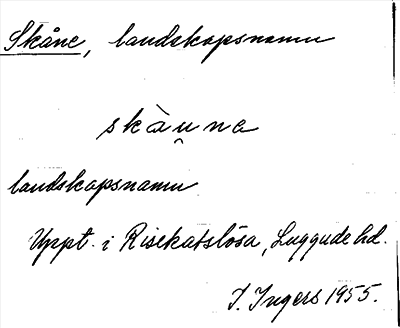 Skåne, landskapsnamn
skàu̯na
landskapsnamn
Uppt. i Risekatslösa, Luggude hd.
I. Ingers 1955.